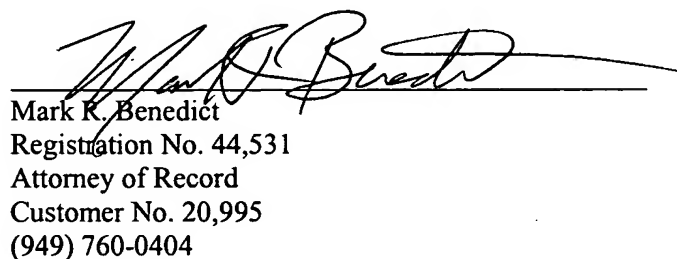 Mark R. Benedict
Mark R. Benedict
Registration No. 44,531
Attorney of Record
Customer No. 20,995
(949) 760-0404